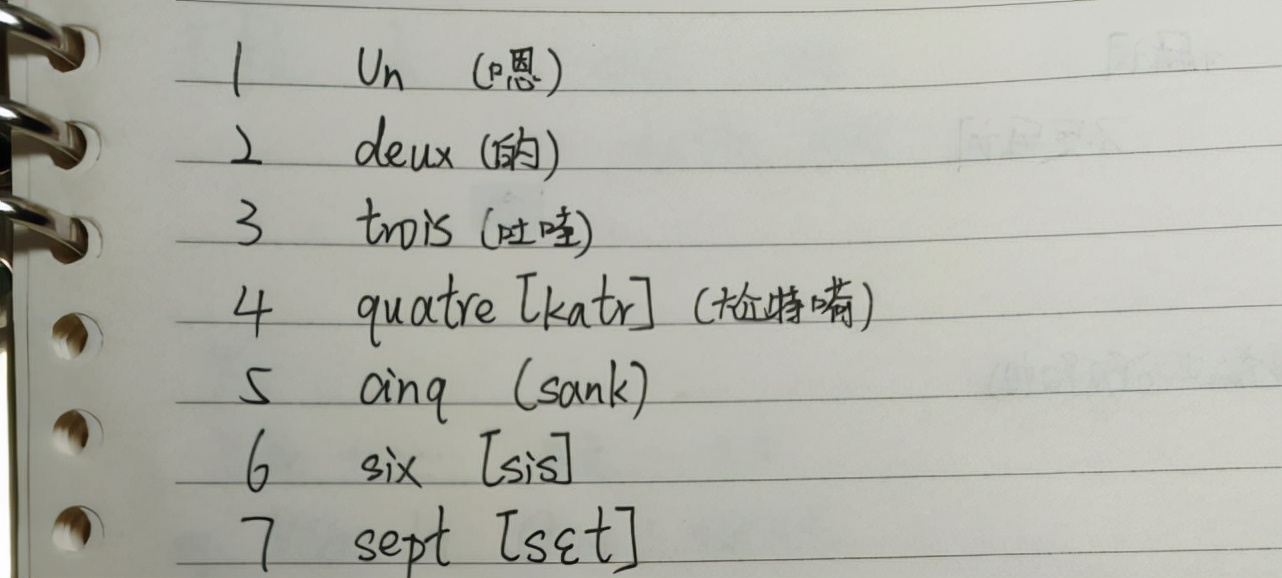 1 Un (嗯)
2 deux (的)
3 trois (吐哇)
4 quatre [katr] (尬特嗬)
5 cinq (sank)
6 six [sis]
7 sept [sɛt]